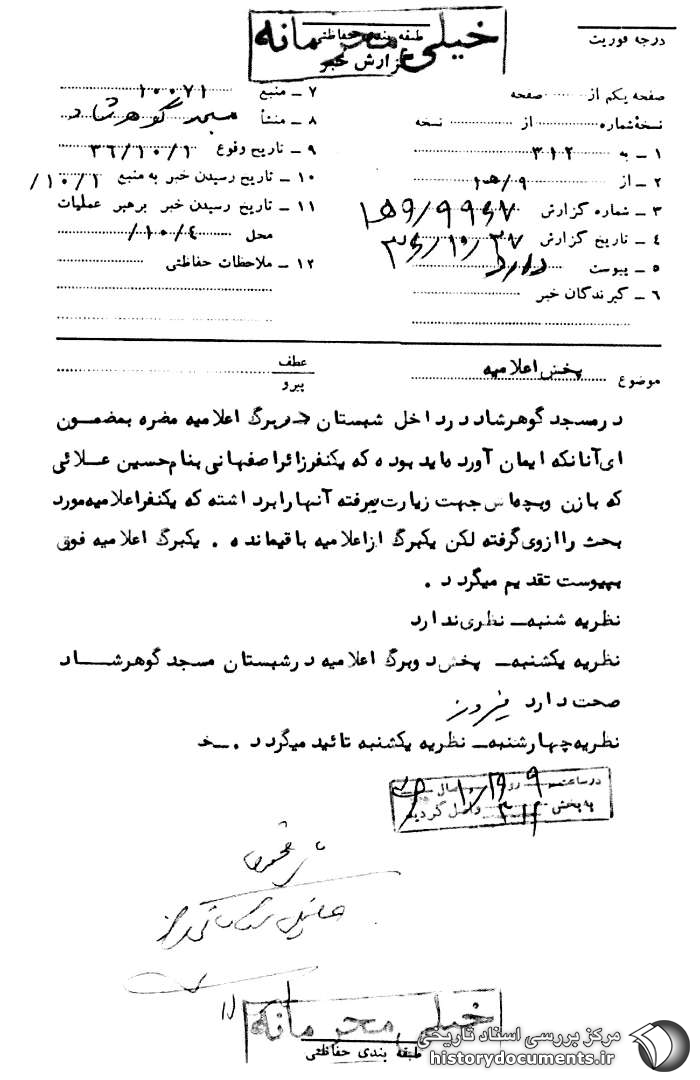 درجه فوریت
طبقه بندی حفاظتی
خیلی محرمانه
گزارش خبر
صفحه یکم از ........ صفحه
نسخهٔ شماره ........ از ........ نسخه
۱ ــ به ۳۱۲
۲ ــ از ۹/ه۱
۳ ــ شماره گزارش
۴ ــ تاریخ گزارش
۵ ــ پیوست دارد
۶ ــ گیرندگان خبر
۷ ــ منبع ۱۰۰۷۱
۸ ــ منشأ مسجد گوهرشاد
۹ ــ تاریخ وقوع ۳۶/۱۰/۱
۱۰ ــ تاریخ رسیدن خبر به منبع ۱۰/۱/
۱۱ ــ تاریخ رسیدن خبر برهبر عملیات
محل ۱۰/۴/
۱۲ ــ ملاحظات حفاظتی
موضوع پخش اعلامیه
عطف
پیرو
در مسجد گوهرشاد در داخل شبستان دو برگ اعلامیه مضره بمضمون
ای آنانکه ایمان آورده اید بوده که یکنفر زائر اصفهانی بنام حسین علائی
که بازن وبچه اش جهت زیارت میرفته آنها را برداشته که یکنفر اعلامیه مورد
بحث را از وی گرفته لکن یکبرگ از اعلامیه باقیمانده . یکبرگ اعلامیه فوق
بپیوست تقدیم میگردد .
نظریه شنبه ــ نظری ندارد
نظریه یکشنبه ــ پخش دو برگ اعلامیه در شبستان مسجد گوهرشاد
صحت دارد
نظریه چهارشنبه ــ نظریه یکشنبه تائید میگردد . ــ خ
در ساعت ۹ روز سال
به بخش ۳۱۲ واصل گردید
خیلی محرمانه
طبقه بندی حفاظتی
مرکز بررسی اسناد تاریخی
historydocuments.ir